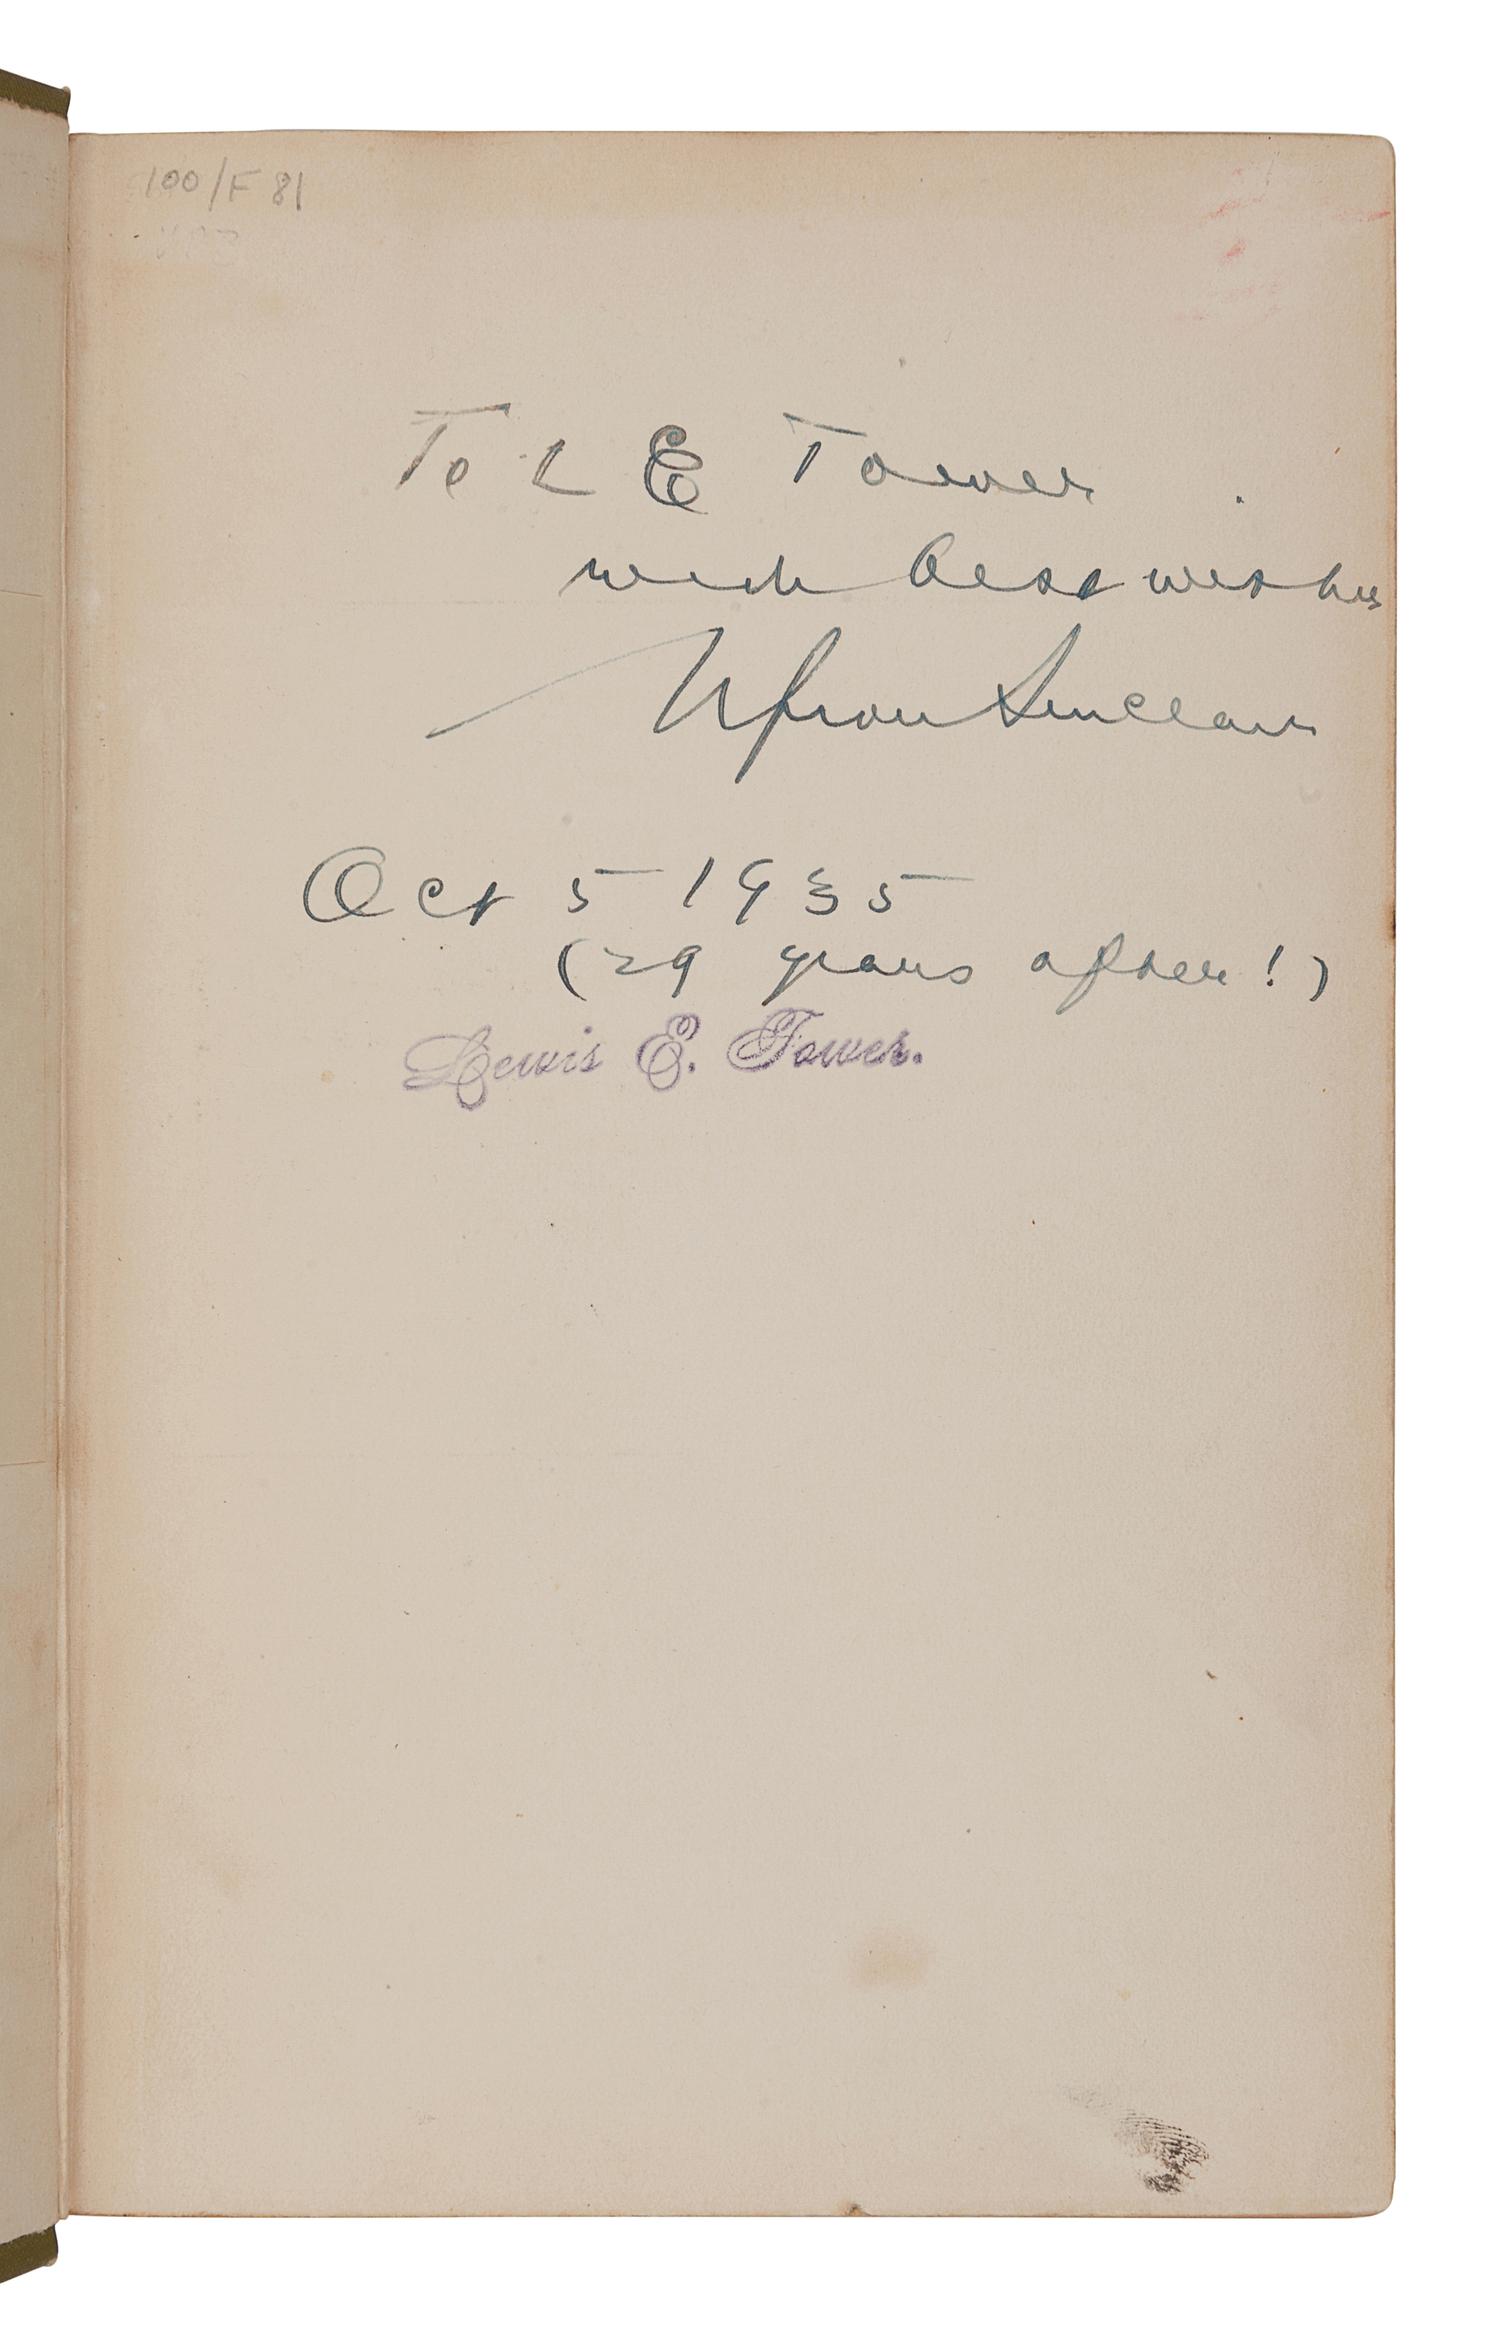 100/F 81
To L E Tower
with best wishes
Upton Sinclair
Oct 5 1935
(29 years after!)
Lewis E. Tower.